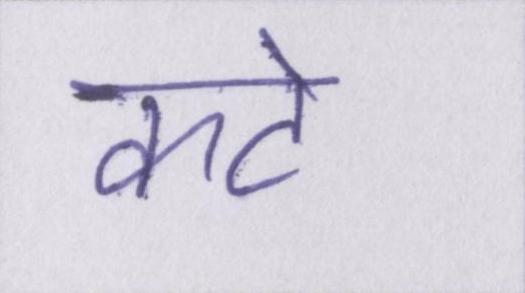 कटे